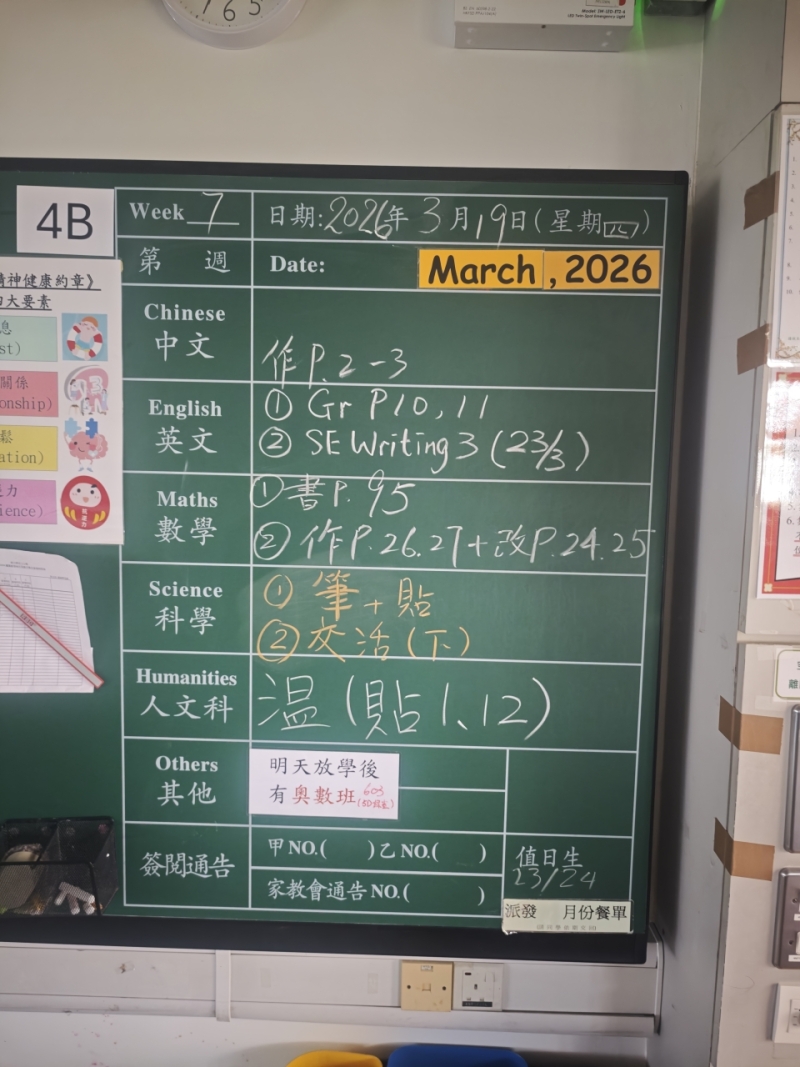 7 6 5
Model: EM-LED-ETS-6
LED Twin Spot Emergency Light
4B
Week 7
日期:2026年3月19日(星期四)
第 週
Date: March , 2026
精神健康約章》
四大要素
息
st)
關係
onship)
鬆
ation)
力
ience)
Chinese
中文
作P.2-3
English
英文
① Gr P10,11
② SE Writing 3 (23/3)
Maths
數學
①書P.95
②作P.26.27+改P.24.25
Science
科學
①筆+貼
②交活(下)
Humanities
人文科
温(貼1、12)
Others
其他
明天放學後
有奧數班 603
簽閱通告
甲NO.( )乙NO.( )
家教會通告NO.( )
值日生
23/24
派發 月份餐單